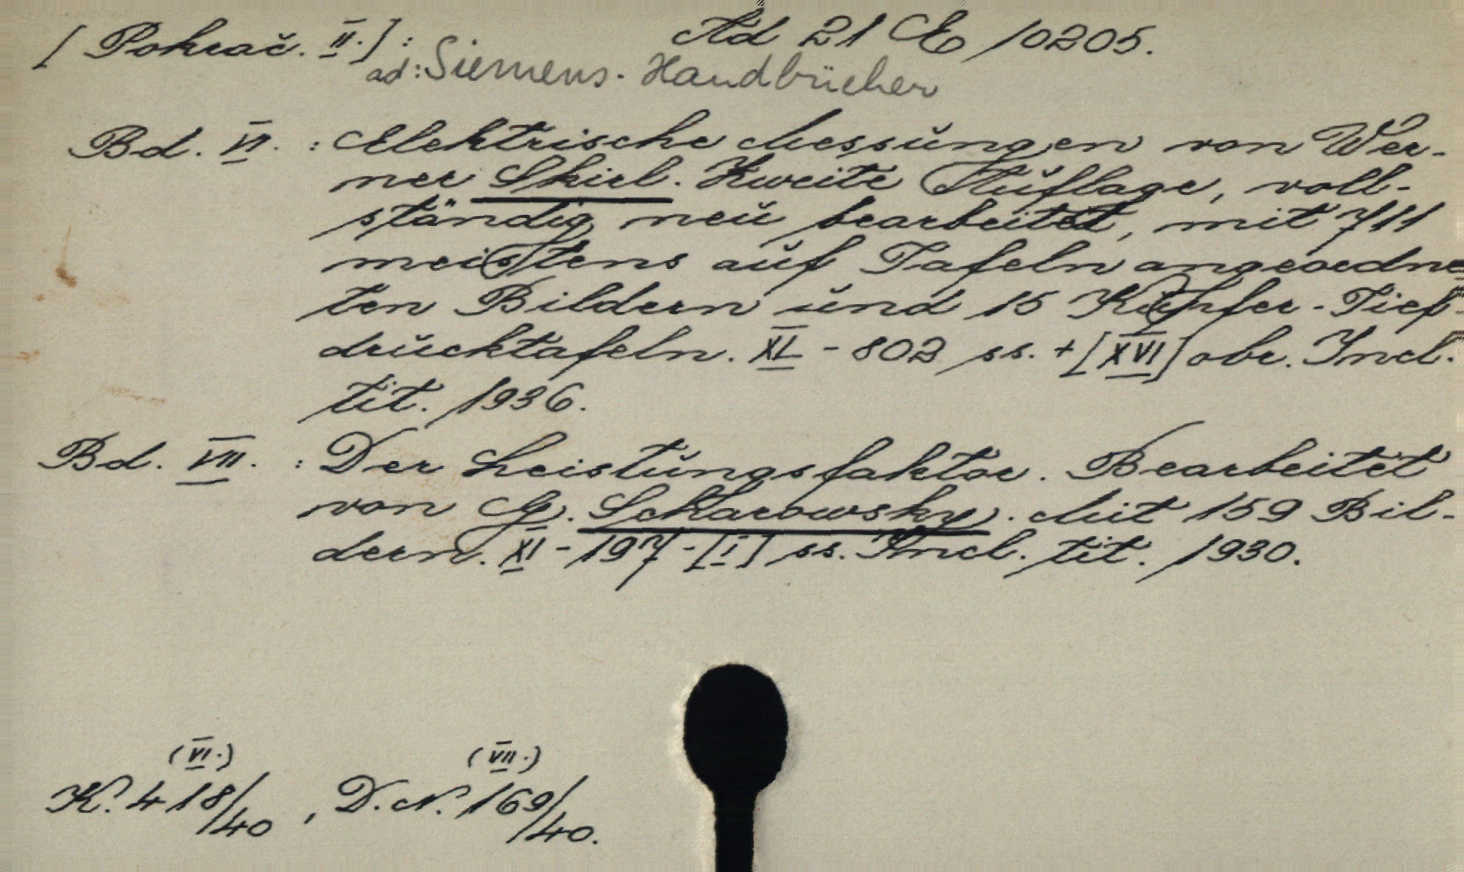 [Pokrač. II.]: Ad 21 E 10205.
ad: Siemens-Handbücher
Bd. VI. : Elektrische Messŭngen von Wer-
ner Skirl. Zweite Aŭflage, voll-
ständig neŭ bearbeitet, mit 711
meistens aŭf Tafeln angeordne-
ten Bildern ŭnd 15 Kŭpfer-Tief-
drŭcktafeln. XL - 802 ss. + [XVI] obr. Incl.
tit. 1936.
Bd. VII. : Der Leistŭngsfaktor. Bearbeitet
von G. Sckarowsky. Mit 159 Bil-
dern. XI - 197 - [I] ss. Incl. tit. 1930.
(VI.) (VII.)
K. 418/40, D.N. 169/40.